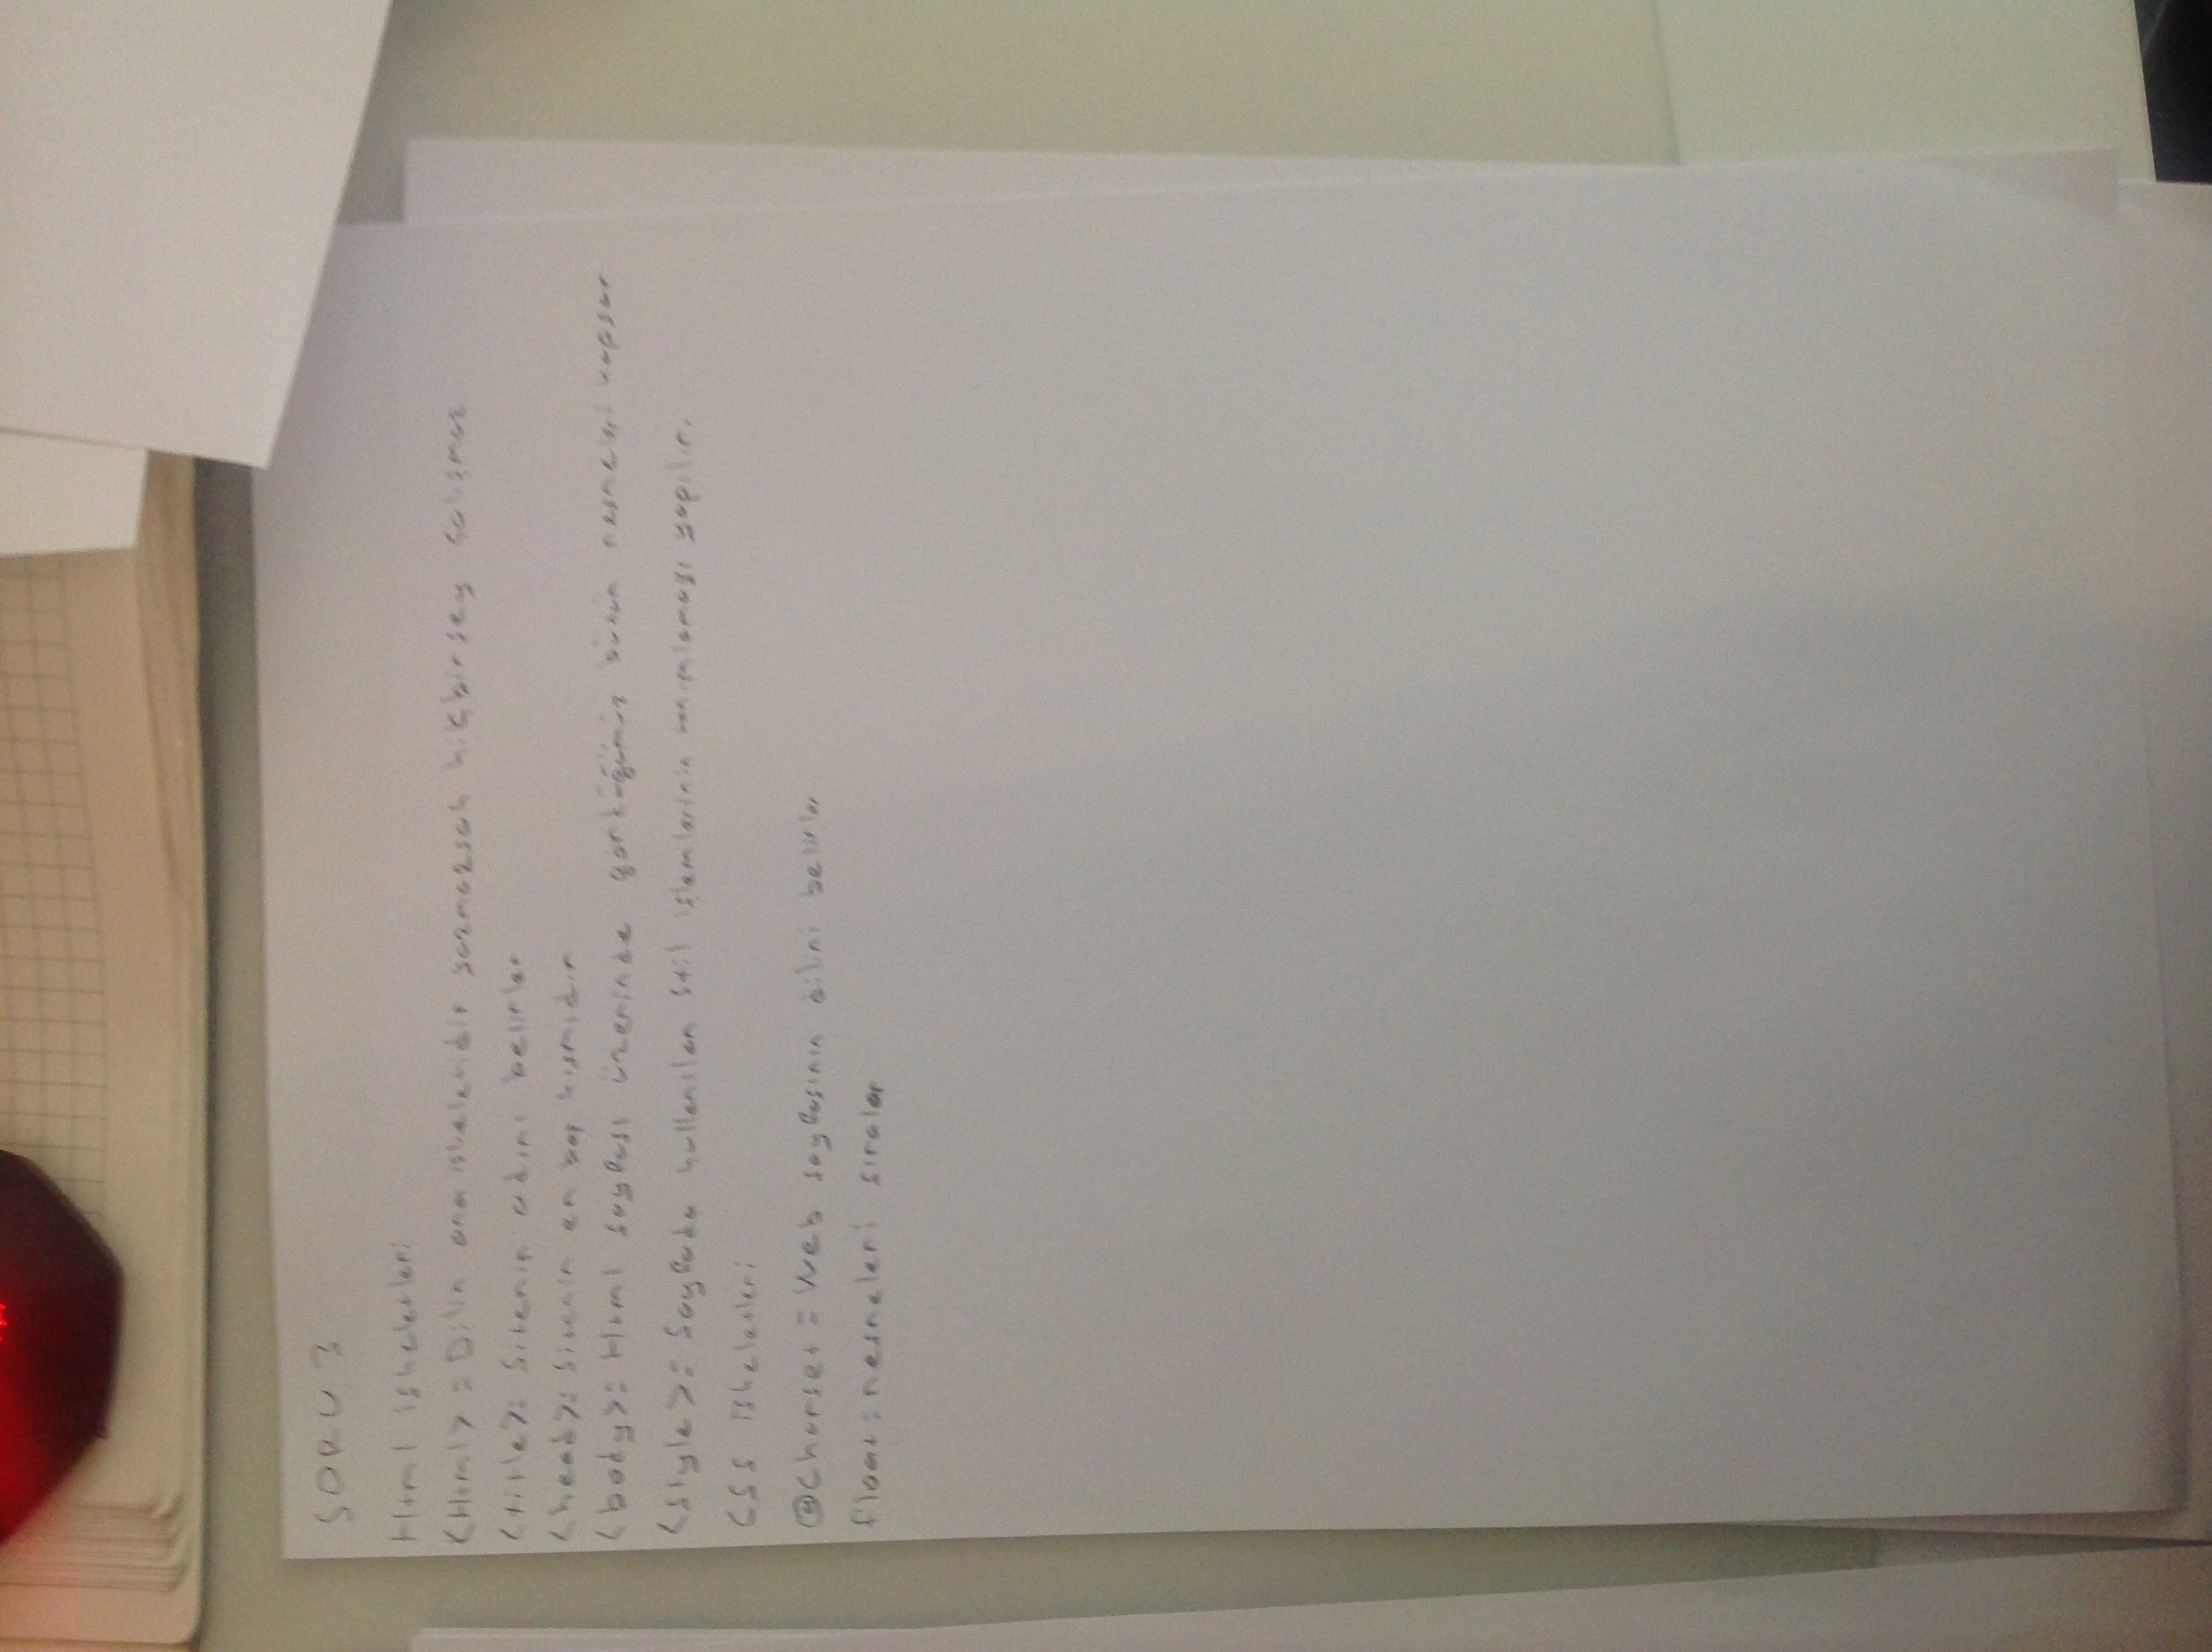 SORU 3
Html iskeletleri
<Html> = Dilin ana iskeletidir yazmazsak hiçbirsey çalışmaz
<title>: Sitenin adını belirler
<head>: Sitenin en baş kısmıdır
<body>: Html sayfası üzerinde gördüğümüz bütün nesneleri kapsar
<style>: Sayfada kullanılan stil işlemlerinin tanımlaması yapılır.
CSS iskeletleri
@Charset = Web sayfasının dilini belirler
float: nesneleri sıralar